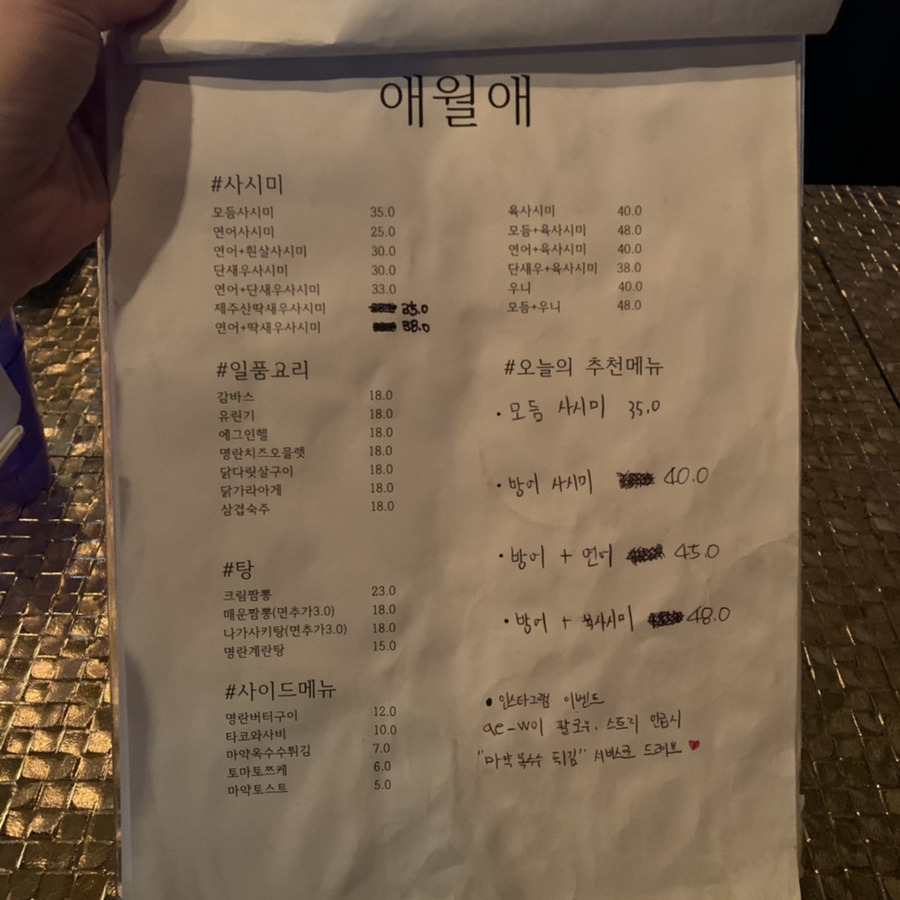 애월애
#사시미
모듬사시미 35.0
연어사시미 25.0
연어+흰살사시미 30.0
단새우사시미 30.0
연어+단새우사시미 33.0
제주산딱새우사시미 35.0
연어+딱새우사시미 38.0
육사시미 40.0
모듬+육사시미 48.0
연어+육사시미 40.0
단새우+육사시미 38.0
우니 40.0
모듬+우니 48.0
#일품요리
감바스 18.0
유린기 18.0
에그인헬 18.0
명란치즈오믈렛 18.0
닭다릿살구이 18.0
닭가라아게 18.0
삼겹숙주 18.0
#탕
크림짬뽕 23.0
매운짬뽕(면추가3.0) 18.0
나가사키탕(면추가3.0) 18.0
명란계란탕 15.0
#사이드메뉴
명란버터구이 12.0
타코와사비 10.0
마약옥수수튀김 7.0
토마토쯔케 6.0
마약토스트 5.0
#오늘의 추천메뉴
· 모듬 사시미 35.0
· 방어 사시미 40.0
· 방어 + 연어 45.0
· 방어 + 육사시미 48.0
• 인스타그램 이벤트
ae-w이 팔로우, 스토리 인증시
"마약 옥수수 튀김" 서비스로 드려요 ♥